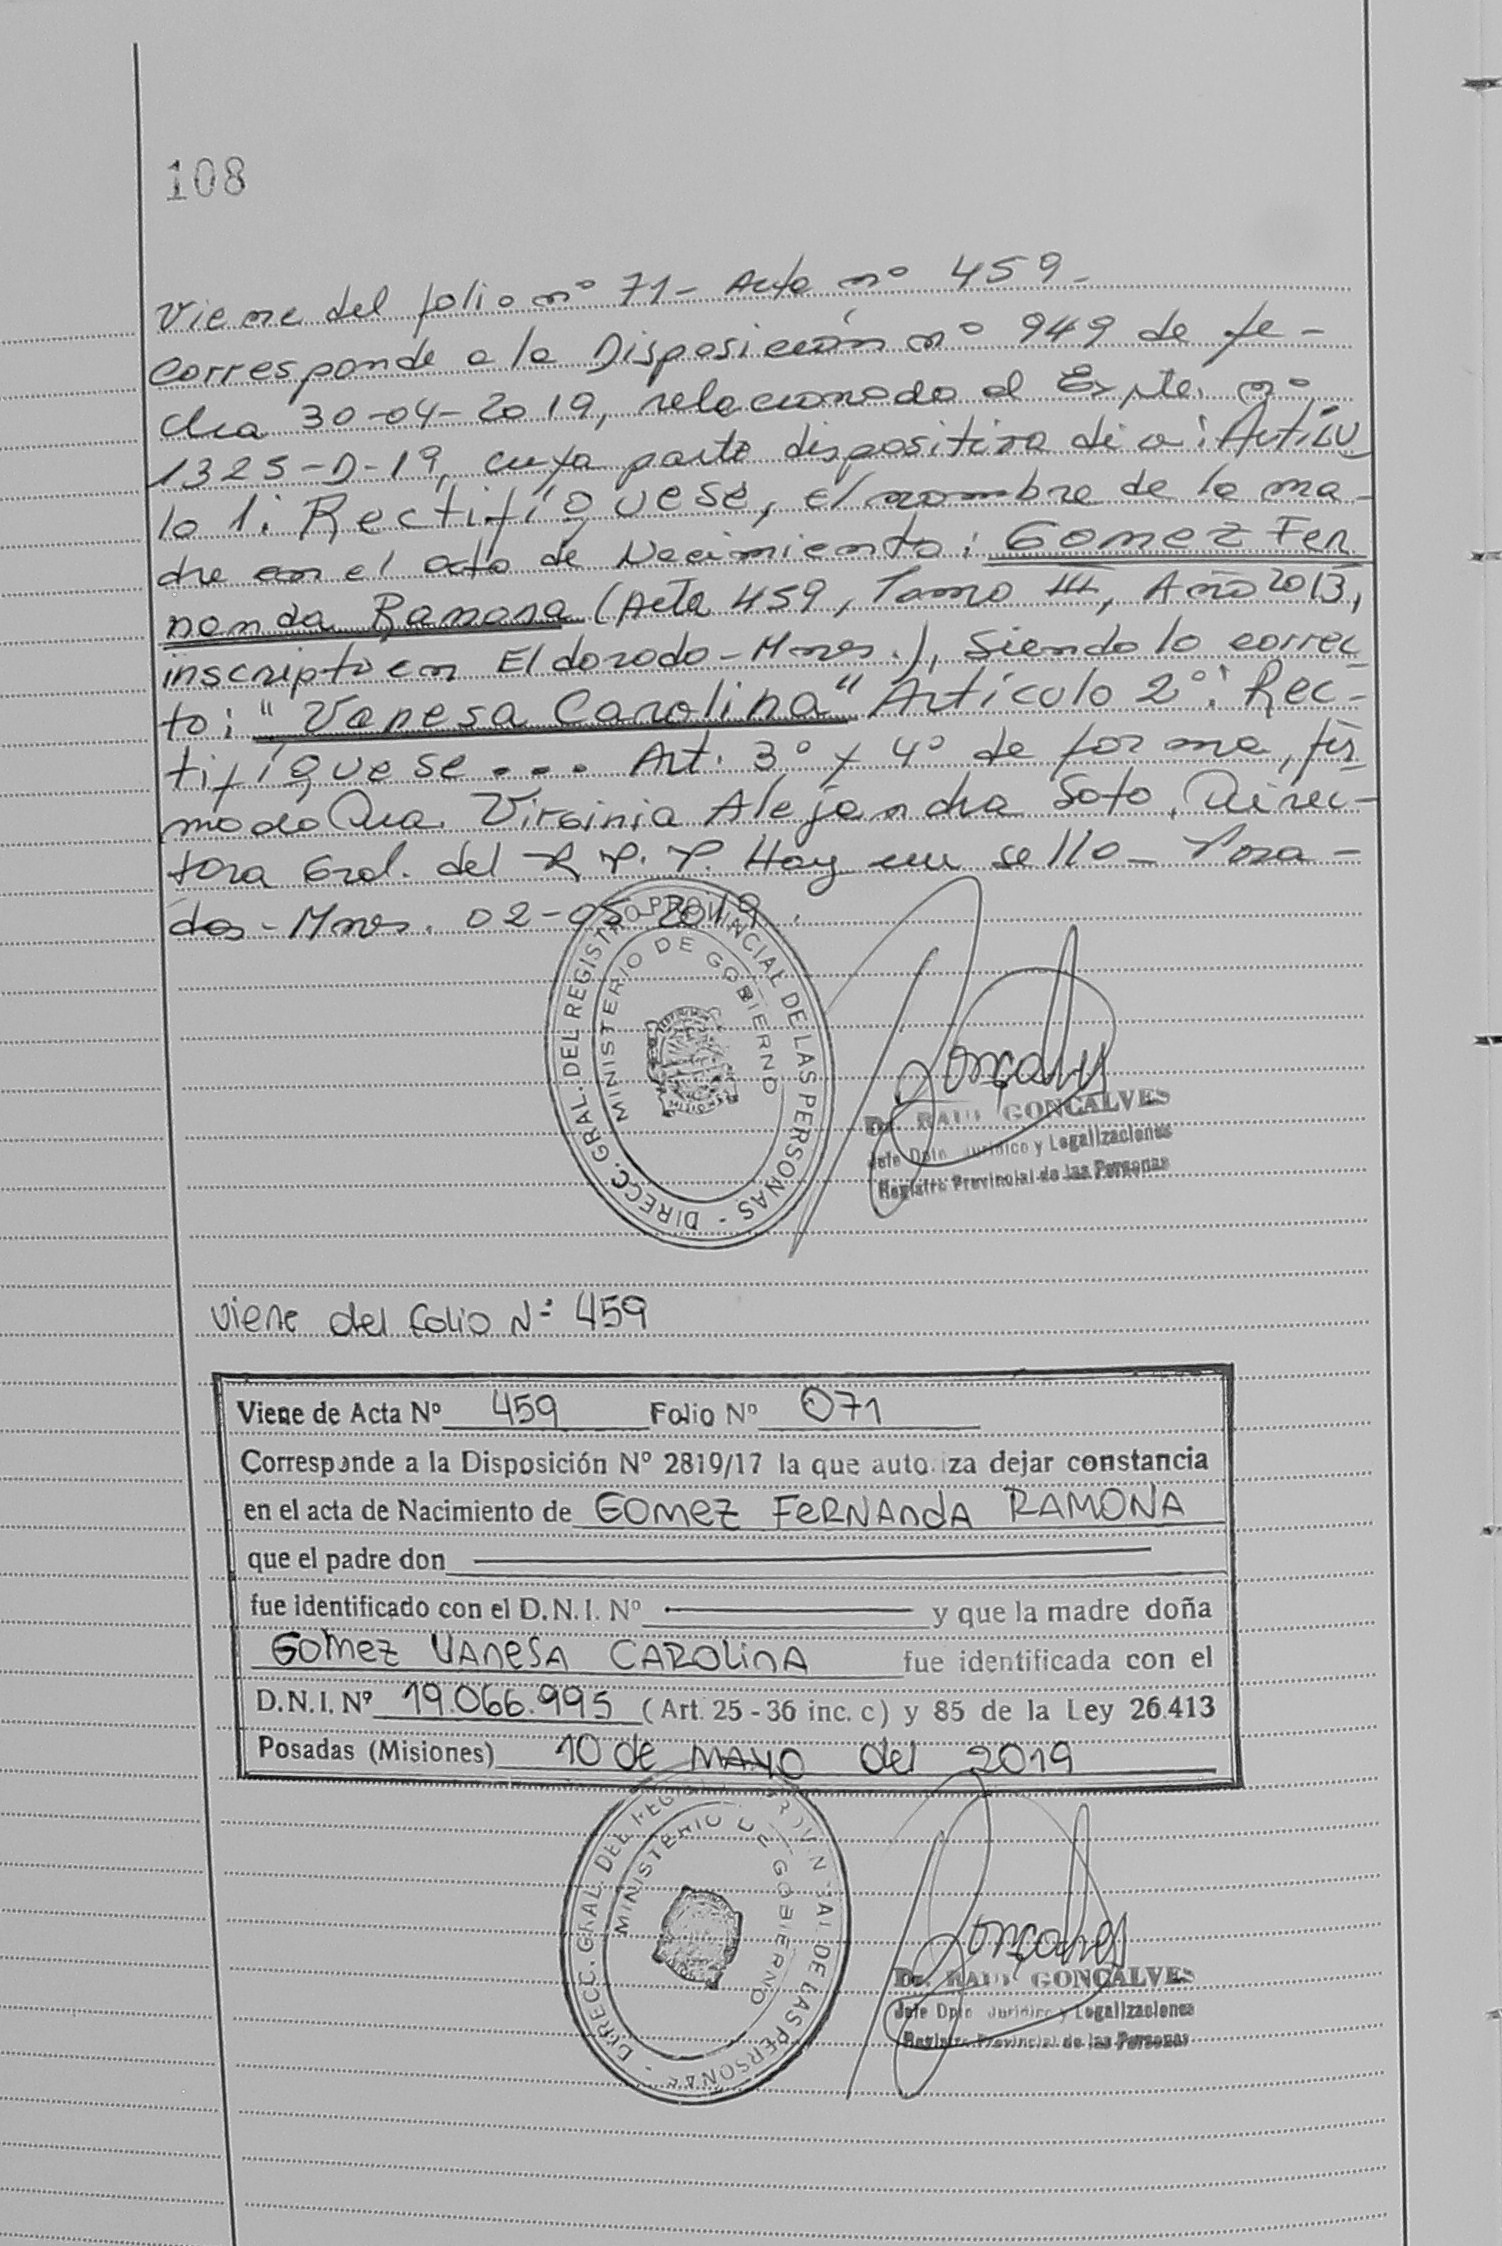 108
Viene del folio nº 71- Acta nº 459-
Corresponde a la Disposición nº 949 de fe-
cha 30-04-2019, relacionado al Expte. nº
1325-D-19, cuya parte dispositiva dice: Artícu
lo 1: Rectifíquese, el nombre de la ma-
dre en el acta de Nacimiento: Gomez Fer
nanda Ramona (Acta 459, Tomo III, Año 2013,
inscripto en Eldorado-Mnes.), Siendo lo correc
to: "Vanesa Carolina" Artículo 2º: Rec-
tifíquese... Art. 3º y 4º de forma, fir
mado Dra. Virginia Alejandra Soto, Direc-
tora Gral. del R.P.P. Hay un sello- Posa-
das-Mnes. 02-05-2019.
DIRECC. GRAL. DEL REGISTRO PROVINCIAL DE LAS PERSONAS -
MINISTERIO DE GOBIERNO
MISIONES
Gonçalves
Dr. RAUL GONCALVES
Jefe Dpto. Jurídico y Legalizaciones
Registro Provincial de las Personas
Viene del folio Nº 459
Viene de Acta Nº 459 Folio Nº 071
Corresponde a la Disposición Nº 2819/17 la que autoriza dejar constancia
en el acta de Nacimiento de GOMEZ FERNANDA RAMONA
que el padre don
fue identificado con el D.N.I. Nº y que la madre doña
GOMEZ VANESA CAROLINA fue identificada con el
D.N.I. Nº 19.066.995 (Art. 25 - 36 inc. c) y 85 de la Ley 26.413
Posadas (Misiones) 10 de MAYO del 2019
DIRECC. GRAL. DEL REGISTRO PROVINCIAL DE LAS PERSONAS -
MINISTERIO DE GOBIERNO
Gonçalves
Dr. RAUL GONCALVES
Jefe Dpto. Jurídico y Legalizaciones
Registro Provincial de las Personas